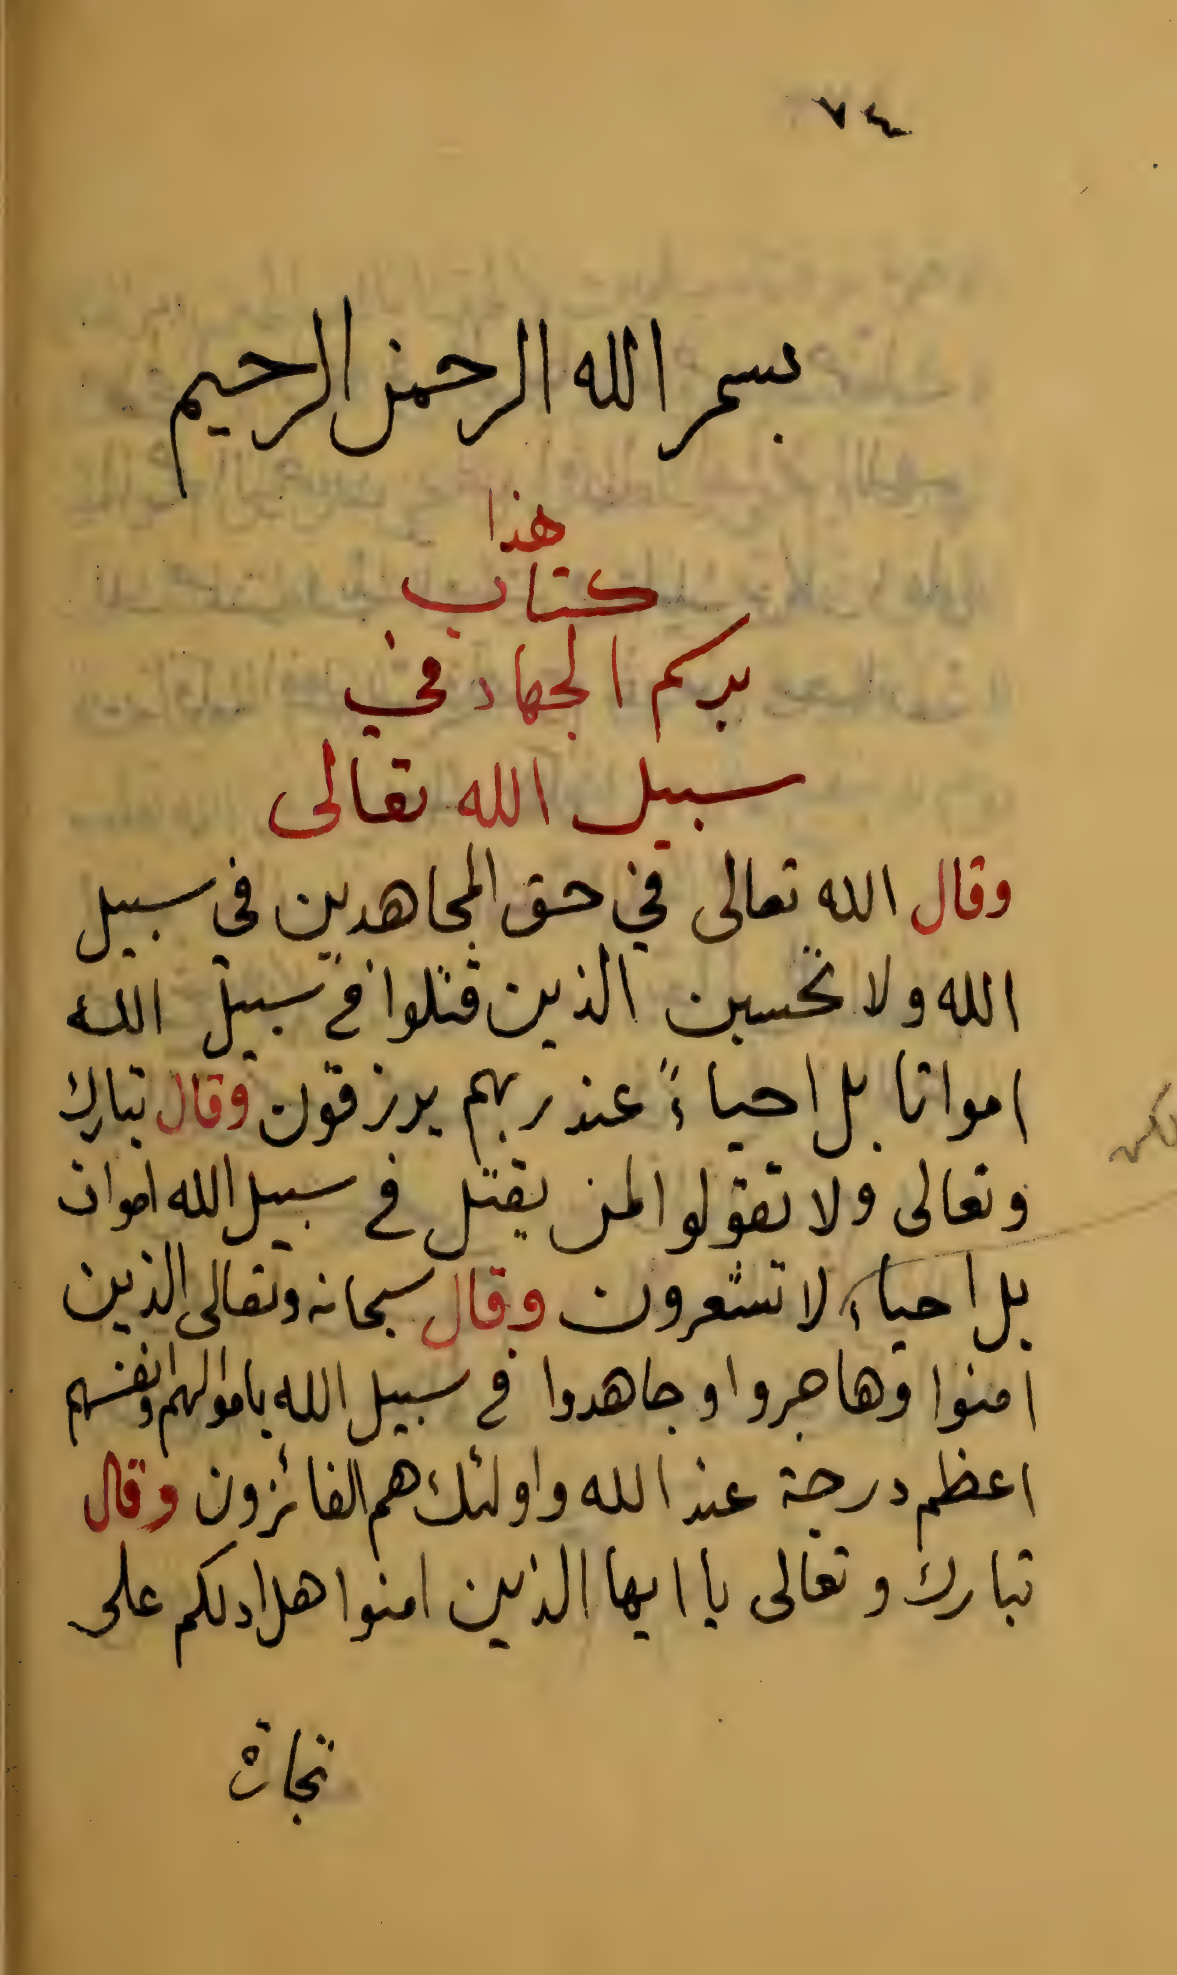 ٧٤
بسم الله الرحمن الرحيم
هذا
كتاب
يركم الجهاد في
سبيل الله تعالى
وقال الله تعالى في حق المجاهدين في سبيل
الله ولا تحسبن الذين قتلوا في سبيل الله
امواتا بل احياءً عند ربهم يرزقون وقال تبارك
وتعالى ولا تقولوا لمن يقتل في سبيل الله اموات
بل احياء لا تشعرون وقال سبحانه وتعالى الذين
امنوا وهاجروا وجاهدوا في سبيل الله باموالهم وانفسهم
اعظم درجة عند الله واولئك هم الفائزون وقال
تبارك وتعالى يا ايها الذين امنوا هل ادلكم على
تجارة